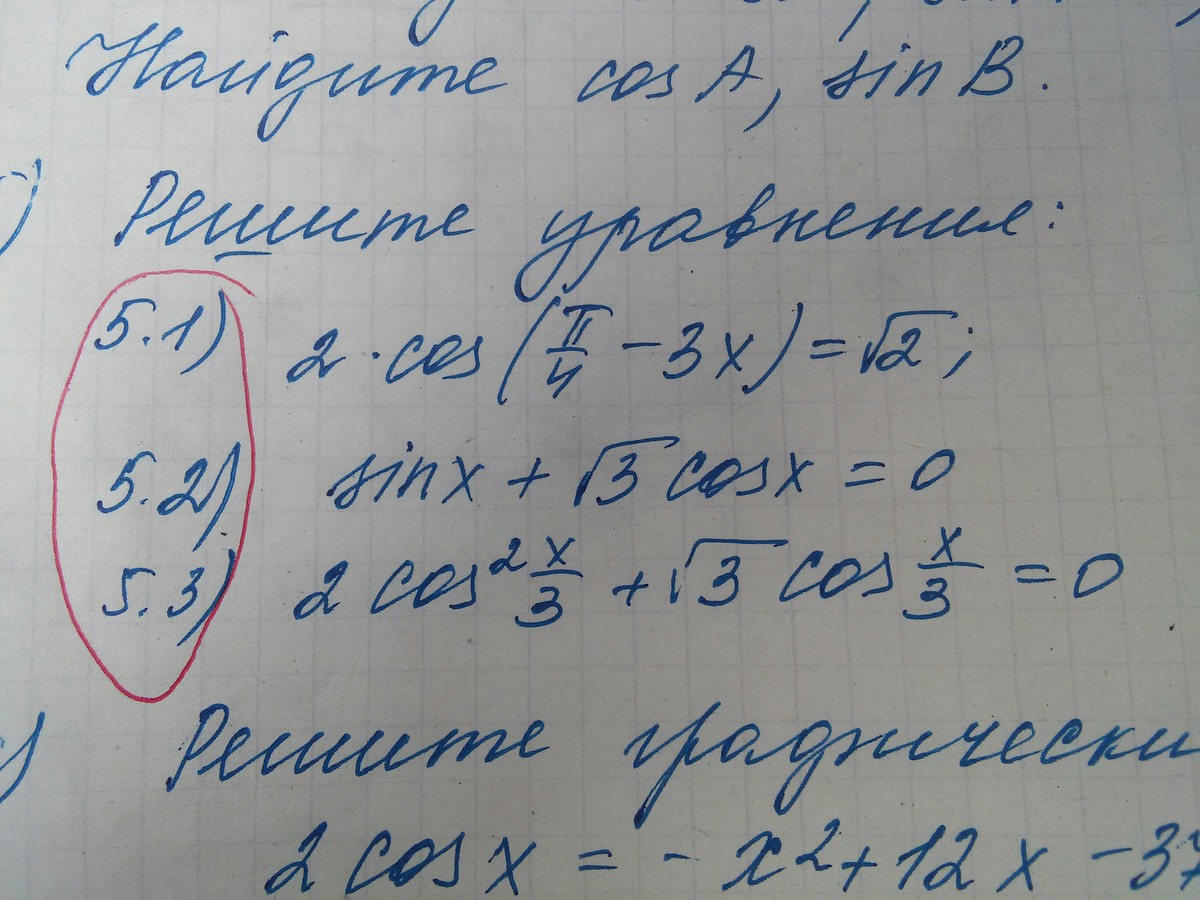 Найдите cos A, sin B.
Решите уравнения:
5.1) 2 · cos(π/4 − 3x) = √2;
5.2) sinx + √3 cosx = 0
5.3) 2 cos² x/3 + √3 cos x/3 = 0
Решите графически
2 cos x = - x² + 12 x - 37